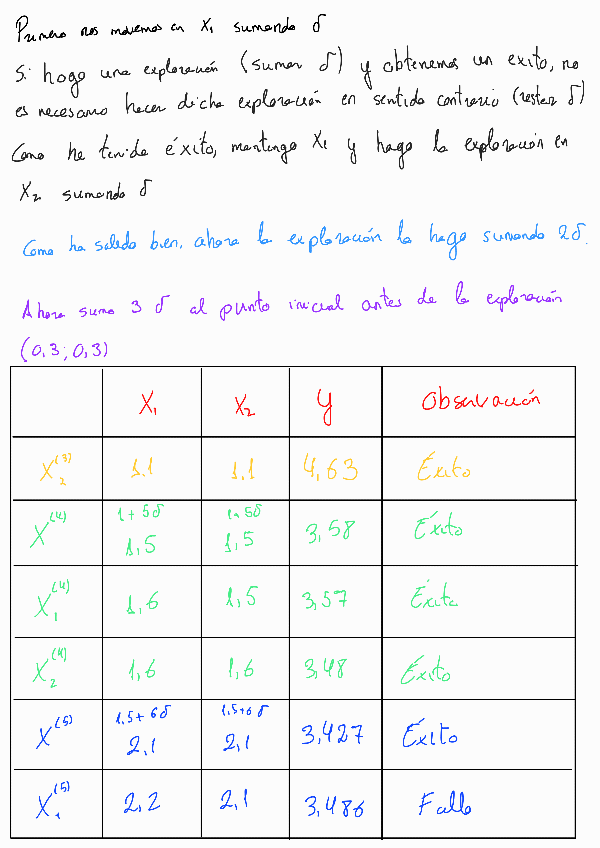 Primero nos movemos en X₁ sumando δ
Si hago una exploración (sumar δ) y obtenemos un exito, no
es necesario hacer dicha exploración en sentido contrario (restar δ)
Como he tenido éxito, mantengo X₁ y hago la exploración en
X₂ sumando δ
Como ha salido bien, ahora la exploración la hago sumando 2δ.
Ahora sumo 3 δ al punto inicial antes de la exploración
(0,3; 0,3)
X₁ X₂ Y Observación
X₂⁽³⁾ 1.1 1.1 4,63 Éxito
1+5δ 1+5δ
X⁽⁴⁾ 1,5 1,5 3,58 Éxito
X₁⁽⁴⁾ 1,6 1,5 3,57 Éxito
X₂⁽⁴⁾ 1,6 1,6 3,48 Éxito
1,5+6δ 1,5+6δ
X⁽⁵⁾ 2,1 2,1 3,427 Éxito
X₁⁽⁵⁾ 2,2 2,1 3,486 Fallo